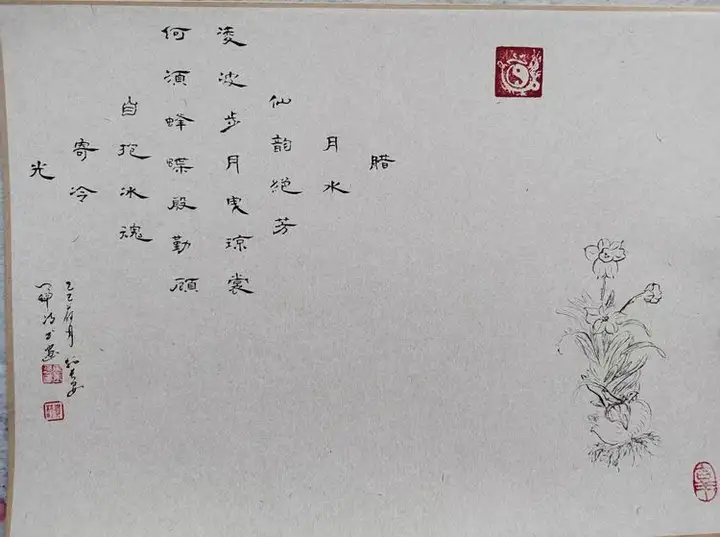 腊
月水
仙韵绝芳
凌波步月曳琼裳
何须蜂蝶殷勤顾
自抱冰魂
寄冷
光
乙巳